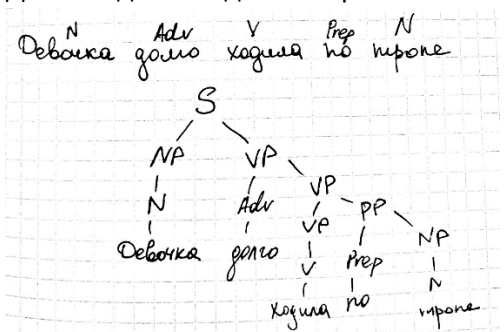 N Adv V Prep N
Девочка долго ходила по тропе
S
NP VP
VP
N Adv VP PP
NP
Девочка долго V Prep
N
ходила по тропе